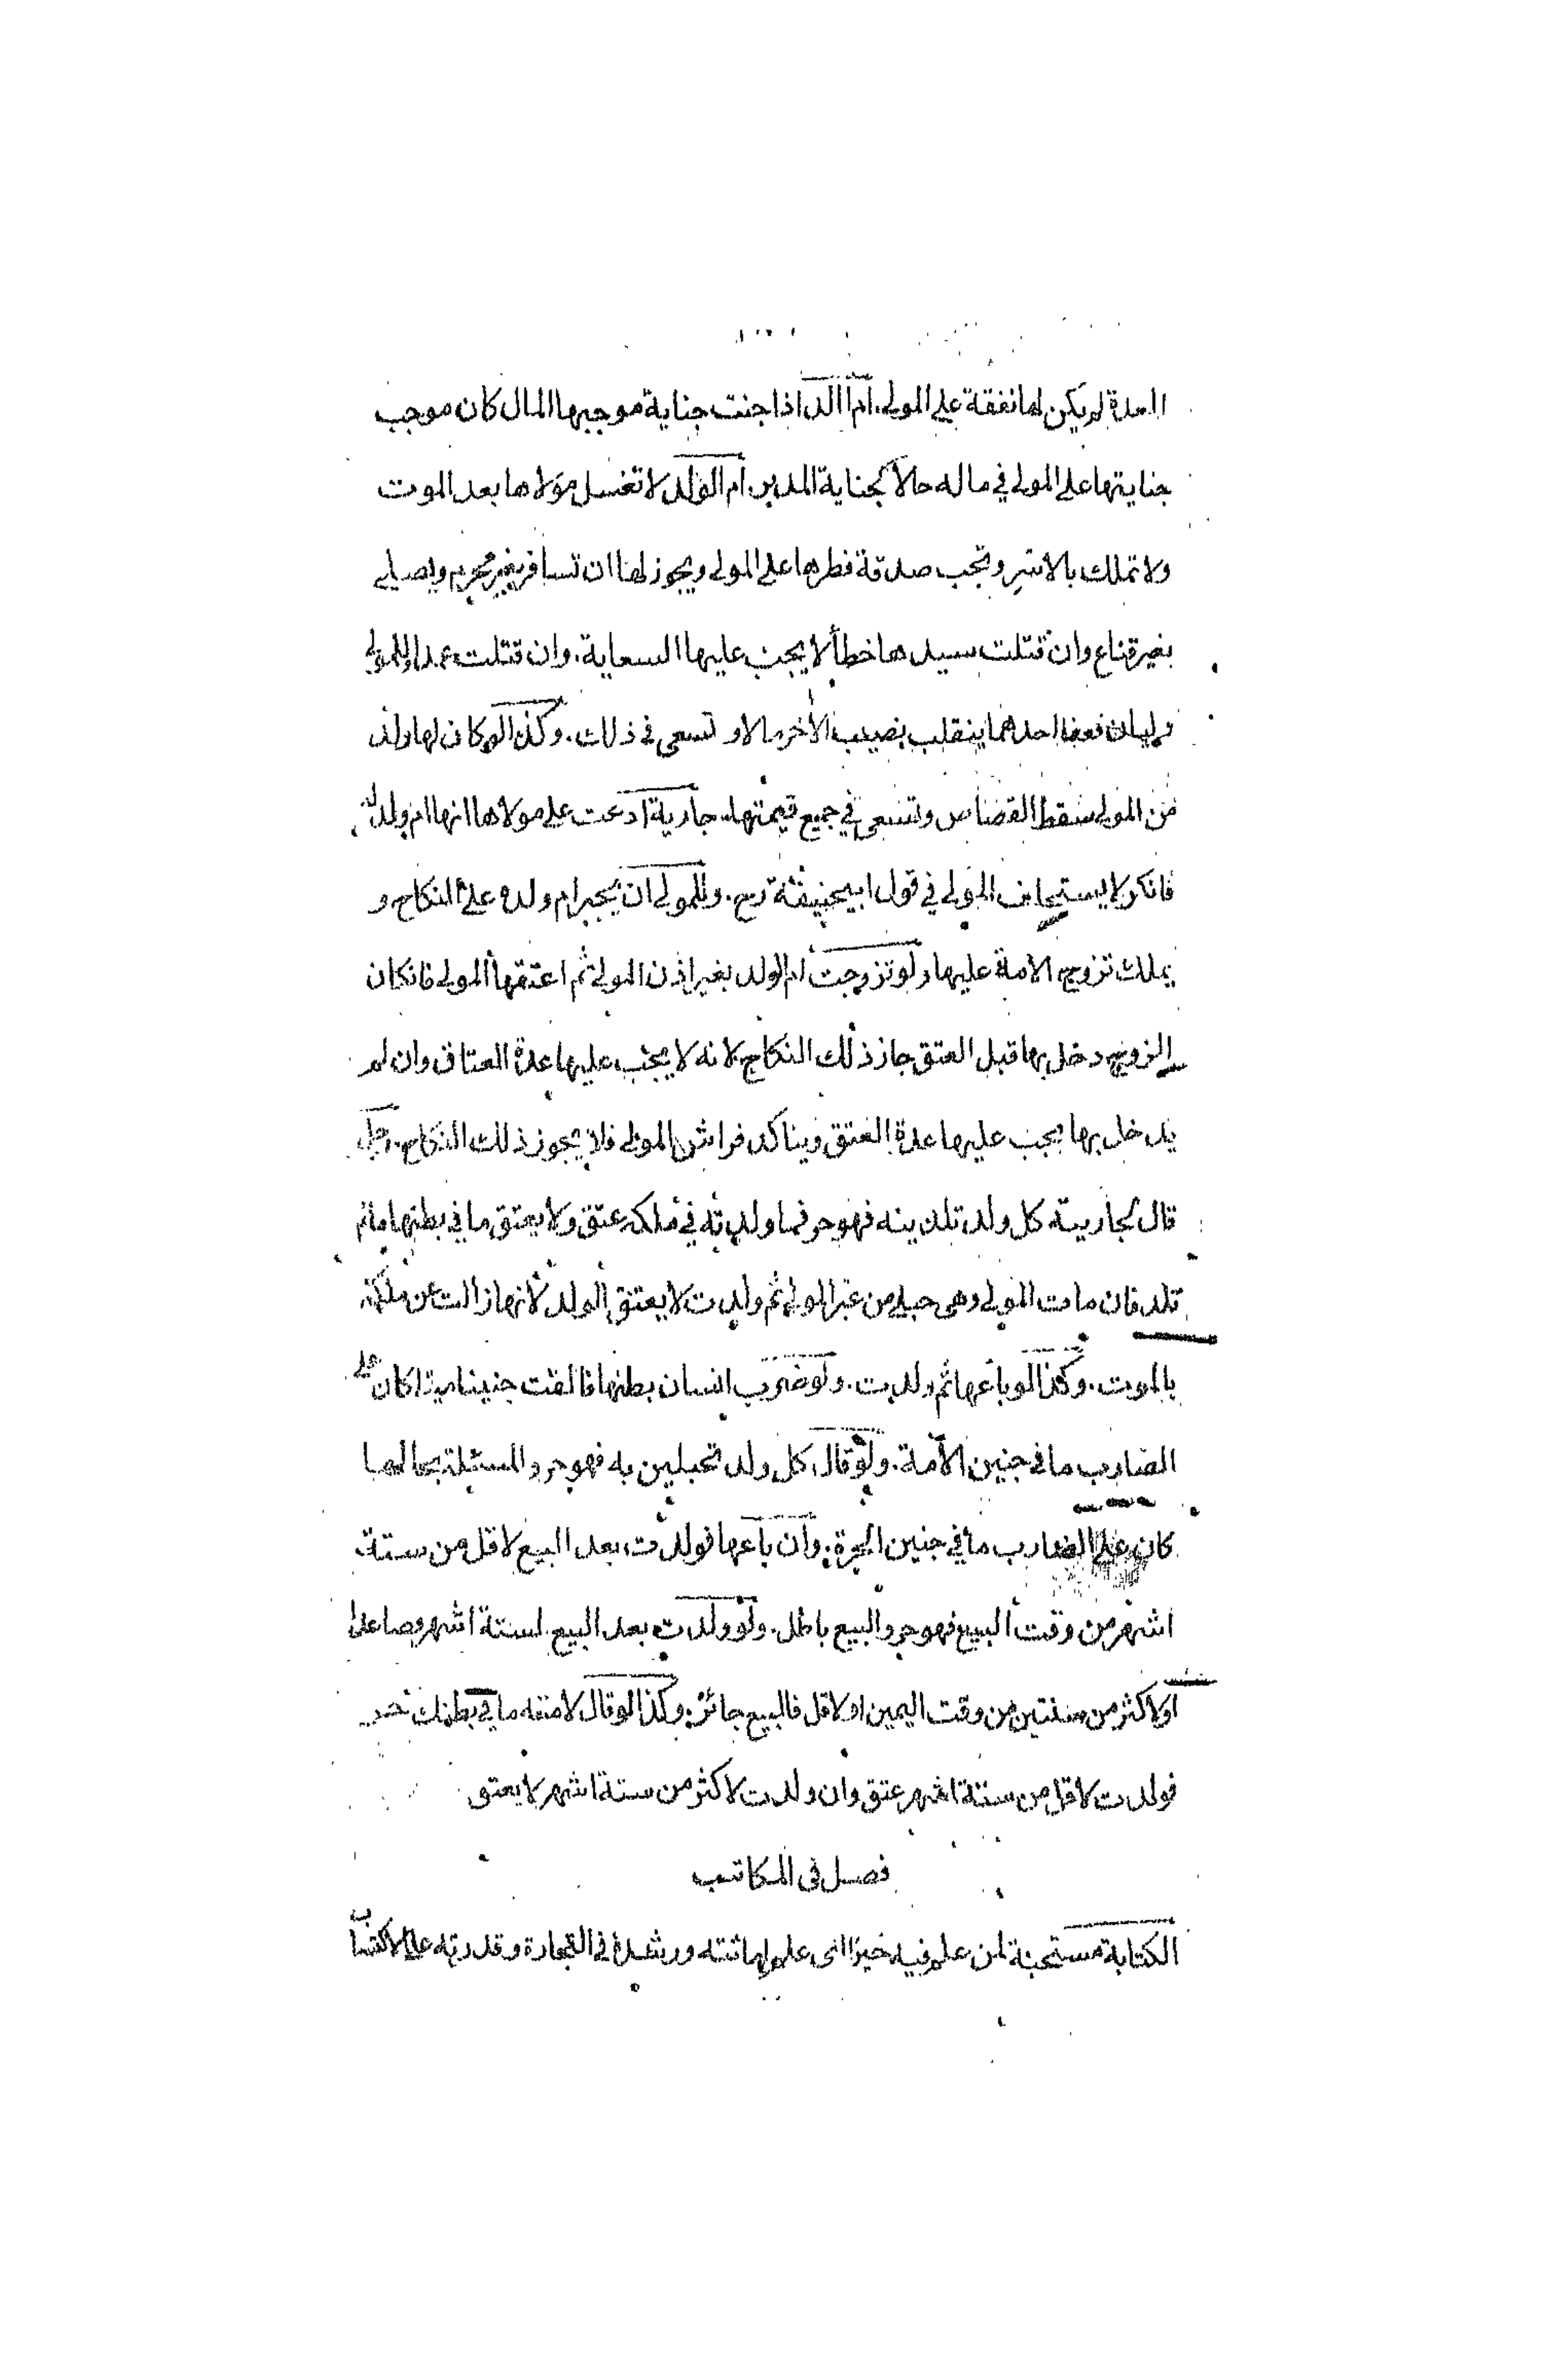 العدة لم يكن لها نفقة على المولى. ام الولد اذا جنت جناية موجبها المال كان موجب
جنايتها على المولى في ماله حالا كجناية المدبر. ام الولد لا تغسل مولاها بعد الموت
ولا تملك بالاسر وتجب صدقة فطرها على المولى ويجوز لها ان تسافر بغير محرم ويصلي
بغير قناع وان قتلت سيدها خطأ لا يجب عليها السعاية. وان قتلت عمدا وللمولى
وليان فعفا احدهما ينقلب نصيب الأخر مالا و تسعى في ذلك. وكذا لو كان لها ولد
من المولى سقط القصاص وتسعى في جميع قيمتها. جارية ادعت على مولاها انها ام ولد له
فانكر لا يستحلف المولى في قول ابيحنيفة رح. وللمولى ان يجبر ام ولده على النكاح و
يملك تزويج الامة عليها ولو تزوجت ام الولد بغير اذن المولى ثم اعتقها المولى فانكان
الزوج دخل بها قبل العتق جاز ذلك النكاح لانه لا يجب عليها عدة العتاق وان لم
يدخل بها يجب عليها عدة العتق ويتاكد فراش المولى فلا يجوز ذلك النكاح. رجل
قال لجاريته كل ولد تلدينه فهو حر فما ولدته في ملكه عتق ولا يعتق ما في بطنها مالم
تلد فان مات المولى وهى حبلى من غير المولى ثم ولدت لا يعتق الولد لأنها زالت عن ملكه
بالموت. وكذا لو باعها ثم ولدت. ولو ضرب انسان بطنها فالقت جنينا ميتا كان على
الضارب ما في جنين الأمة. ولو قال كل ولد تحبلين به فهو حر والمسئلة بحالها
كان على الضارب ما في جنين الحرة. وان باعها فولدت بعد البيع لاقل من ستة
اشهر من وقت البيع فهو حر والبيع باطل. ولو ولدت بعد البيع لستة اشهر وصاعدا
او لاكثر من سنتين من وقت اليمين او لاقل فالبيع جائز. وكذا لو قال لامته ما في بطنك حر
فولدت لاقل من ستة اشهر عتق وان ولدت لاكثر من ستة اشهر لا يعتق
فصل فى المكاتب
الكتابة مستحبة لمن علم فيه خيرا اى علم امانته ورشده فى التجارة وقدرته على الاكتساب